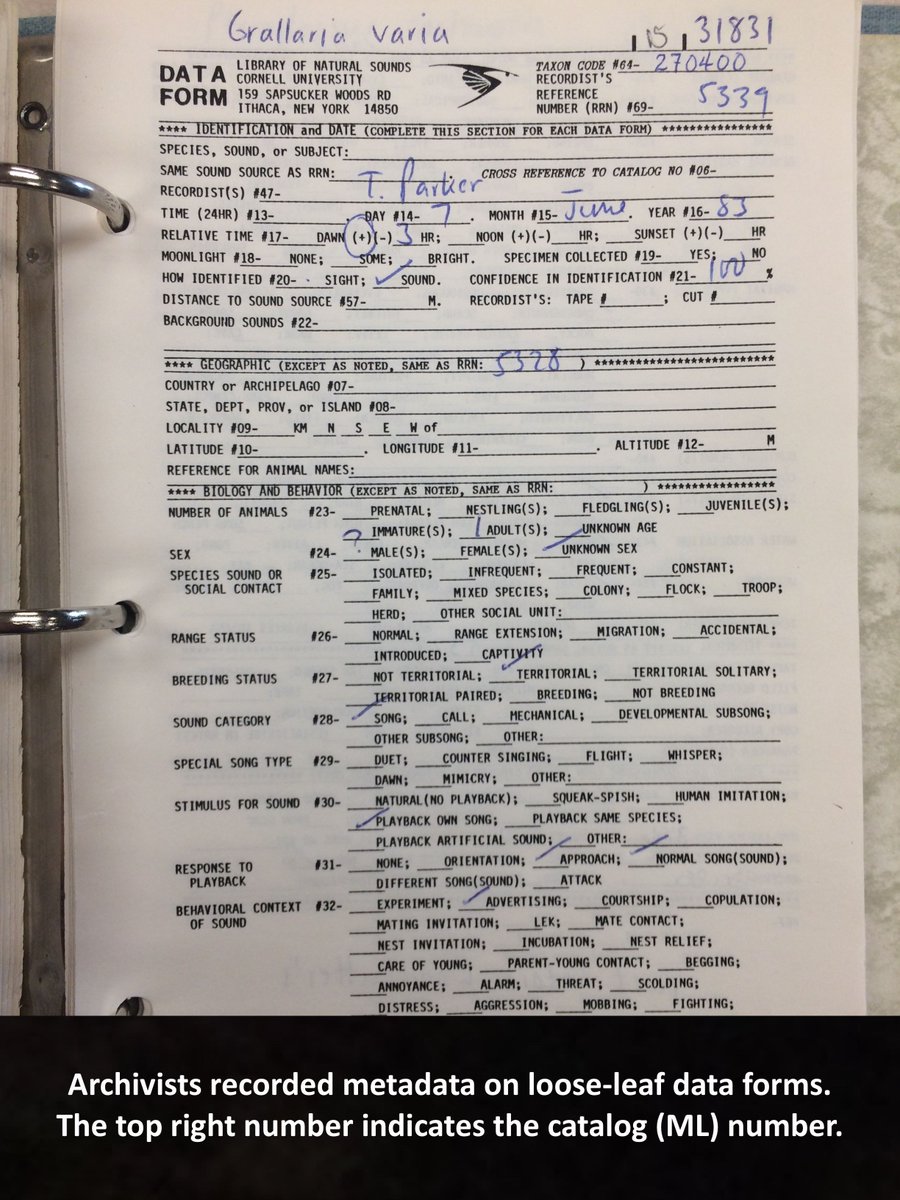 Grallaria varia
15 31831
DATA FORM
LIBRARY OF NATURAL SOUNDS
CORNELL UNIVERSITY
159 SAPSUCKER WOODS RD
ITHACA, NEW YORK 14850
TAXON CODE #64- 270400
RECORDIST'S
REFERENCE
NUMBER (RRN) #69- 5339
**** IDENTIFICATION and DATE (COMPLETE THIS SECTION FOR EACH DATA FORM) ****************
SPECIES, SOUND, or SUBJECT:
SAME SOUND SOURCE AS RRN: . CROSS REFERENCE TO CATALOG NO #06-
RECORDIST(S) #47- T. Parker
TIME (24HR) #13- . DAY #14- 7 . MONTH #15- June. YEAR #16- 83
RELATIVE TIME #17- DAWN (+)(-) 3 HR; NOON (+)(-) HR; SUNSET (+)(-) HR
MOONLIGHT #18- NONE; SOME; BRIGHT. SPECIMEN COLLECTED #19- YES; NO
HOW IDENTIFIED #20- SIGHT; ✓ SOUND. CONFIDENCE IN IDENTIFICATION #21- 100 %
DISTANCE TO SOUND SOURCE #57- M. RECORDIST'S: TAPE # ; CUT #
BACKGROUND SOUNDS #22-
**** GEOGRAPHIC (EXCEPT AS NOTED, SAME AS RRN: 5328 ) **************************
COUNTRY or ARCHIPELAGO #07-
STATE, DEPT, PROV, or ISLAND #08-
LOCALITY #09- KM N S E W of
LATITUDE #10- . LONGITUDE #11- . ALTITUDE #12- M
REFERENCE FOR ANIMAL NAMES:
**** BIOLOGY AND BEHAVIOR (EXCEPT AS NOTED, SAME AS RRN: ) *****************
NUMBER OF ANIMALS #23- PRENATAL; NESTLING(S); FLEDGLING(S); JUVENILE(S);
IMMATURE(S); 1 ADULT(S); UNKNOWN AGE
SEX #24- ? MALE(S); FEMALE(S); ✓ UNKNOWN SEX
SPECIES SOUND OR SOCIAL CONTACT #25- ISOLATED; INFREQUENT; FREQUENT; CONSTANT;
FAMILY; MIXED SPECIES; COLONY; FLOCK; TROOP;
HERD; OTHER SOCIAL UNIT:
RANGE STATUS #26- NORMAL; RANGE EXTENSION; MIGRATION; ACCIDENTAL;
INTRODUCED; CAPTIVITY
BREEDING STATUS #27- NOT TERRITORIAL; ✓ TERRITORIAL; TERRITORIAL SOLITARY;
TERRITORIAL PAIRED; BREEDING; NOT BREEDING
SOUND CATEGORY #28- ✓ SONG; CALL; MECHANICAL; DEVELOPMENTAL SUBSONG;
OTHER SUBSONG; OTHER:
SPECIAL SONG TYPE #29- DUET; COUNTER SINGING; FLIGHT; WHISPER;
DAWN; MIMICRY; OTHER:
STIMULUS FOR SOUND #30- NATURAL(NO PLAYBACK); SQUEAK-SPISH; HUMAN IMITATION;
✓ PLAYBACK OWN SONG; PLAYBACK SAME SPECIES;
PLAYBACK ARTIFICIAL SOUND; OTHER:
RESPONSE TO PLAYBACK #31- NONE; ORIENTATION; ✓ APPROACH; ✓ NORMAL SONG(SOUND);
DIFFERENT SONG(SOUND); ATTACK
BEHAVIORAL CONTEXT OF SOUND #32- EXPERIMENT; ✓ ADVERTISING; COURTSHIP; COPULATION;
MATING INVITATION; LEK; MATE CONTACT;
NEST INVITATION; INCUBATION; NEST RELIEF;
CARE OF YOUNG; PARENT-YOUNG CONTACT; BEGGING;
ANNOYANCE; ALARM; THREAT; SCOLDING;
DISTRESS; AGGRESSION; MOBBING; FIGHTING;
Archivists recorded metadata on loose-leaf data forms.
The top right number indicates the catalog (ML) number.